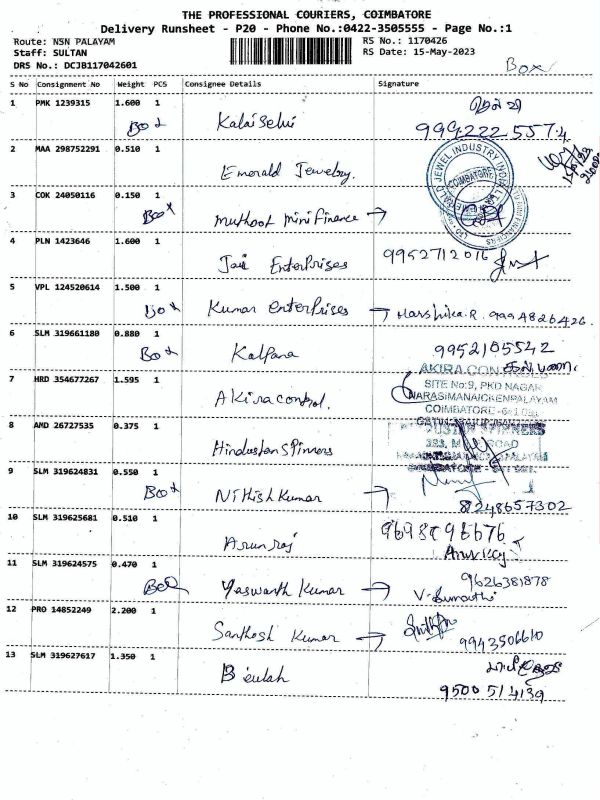 THE PROFESSIONAL COURIERS, COIMBATORE
Delivery Runsheet - P20 - Phone No.:0422-3505555 - Page No.:1
Route: NSN PALAYAM RS No.: 1170426
Staff: SULTAN RS Date: 15-May-2023
DRS No.: DCJB117042601 Box
S No Consignment No Weight PCS Consignee Details Signature
1 PMK 1239315 1.600 1
Box Kalaiselvi 9942225574
2 MAA 298752291 0.510 1
Emerald Jewelry.
COIMBATORE
3 COK 24050116 0.150 1
Box muthoot mini finance →
4 PLN 1423646 1.600 1
Jai Enterprises 9952712016
5 VPL 124520614 1.500 1
Box Kumar enterprises → Harshika.R. 9994826426
6 SLM 319661180 0.880 1
Box Kalpana 9952105542
கல்பனா.
7 HRD 354677267 1.595 1
AKIRA CONTROLS
SITE No:9, PKD NAGAR
Akira control. NARASIMANAICKENPALAYAM
COIMBATORE
8 AMD 26727535 0.375 1
Hindustan Spinners
SPINNERS
ROAD
9 SLM 319624831 0.550 1
Box Nithish Kumar → 8248657302
10 SLM 319625681 0.510 1
Arunraj 9698896676
11 SLM 319624575 0.470 1
Box Yaswanth Kumar → 9626381878
V. Sumathi
12 PRO 14852249 2.200 1
Santhosh Kumar → 9943506610
13 SLM 319627617 1.350 1
Beulah
9500514139